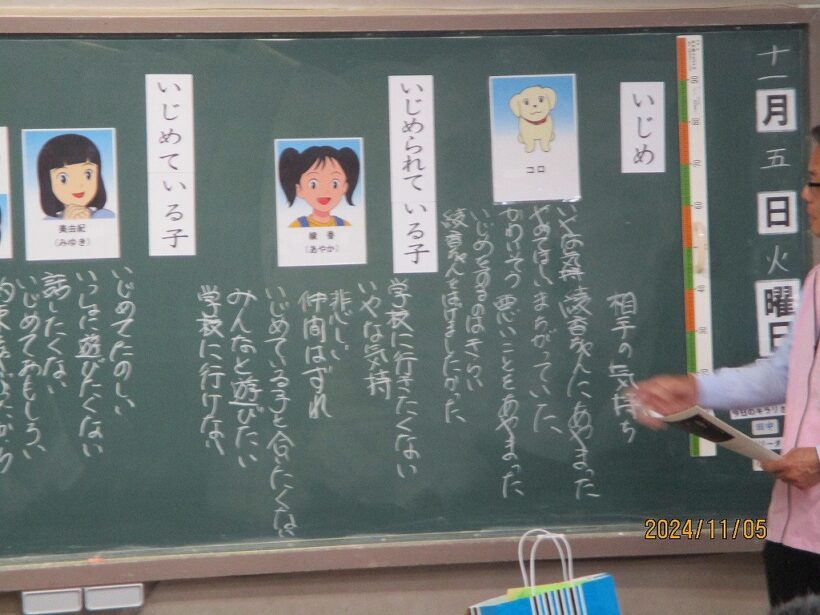 十一月五日火曜日
今日のキラリさ
田中
いじめ
相手の気持ち
コロ
いやな気持 綾香ちゃんにあやまった
やめてほしい まちがっていた
かわいそう 悪いことをあやまった
いじめをするのはきらい
綾香ちゃんをはげましたかった
いじめられている子
学校に行きたくない
いやな気持
悲しい
仲間はずれ
いじめている子と会いたくない
みんなと遊びたい
学校に行けない
綾香
(あやか)
いじめている子
いじめてたのしい
いっしょに遊びたくない
話したくない
いじめておもしろい
美由紀
(みゆき)
2024/11/05